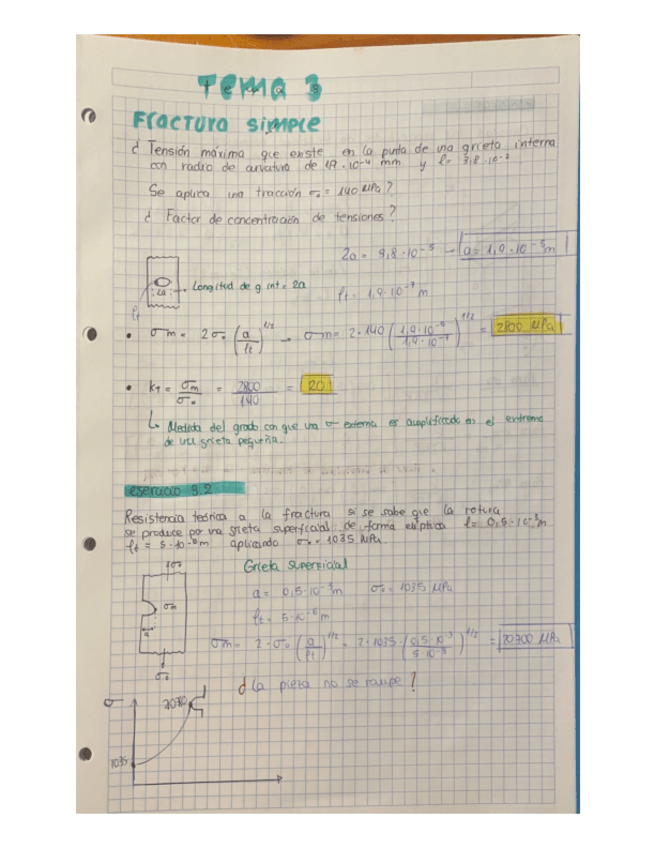 TEMA 3
Fractura simple
¿ Tensión máxima que existe en la punta de una grieta interna
con radio de curvatura de 1,9·10⁻⁴ mm y l = 3,8·10⁻²
Se aplica una tracción σ₀ = 140 MPa?
¿ Factor de concentración de tensiones?
2a = 3,8·10⁻⁵ → a = 1,9·10⁻⁵ m
2a
Longitud de g. int = 2a
ρt = 1,9·10⁻⁷ m
ρt
• σm = 2σ₀ (a/ρt)^1/2 → σm = 2·140 (1,9·10⁻⁵/1,9·10⁻⁷)^1/2 = 2800 MPa
• KT = σm/σ₀ = 2800/140 = 20
↳ Medida del grado con que una σ externa es amplificada en el extremo
de una grieta pequeña.
ejercicio 3.2
Resistencia teórica a la fractura si se sabe que la rotura
se produce por una grieta superficial de forma elíptica l = 0,5·10⁻³ m
ρt = 5·10⁻⁶ m aplicando σ₀ = 1035 MPa.
Grieta superficial
σ₀
a = 0,5·10⁻³ m σ₀ = 1035 MPa
σm
ρt = 5·10⁻⁶ m
a
σm = 2·σ₀ (a/ρt)^1/2 = 2·1035·(0,5·10⁻³/5·10⁻⁶)^1/2 = 20700 MPa
σ₀
¿ La pieza no se rompe?
σ
1035